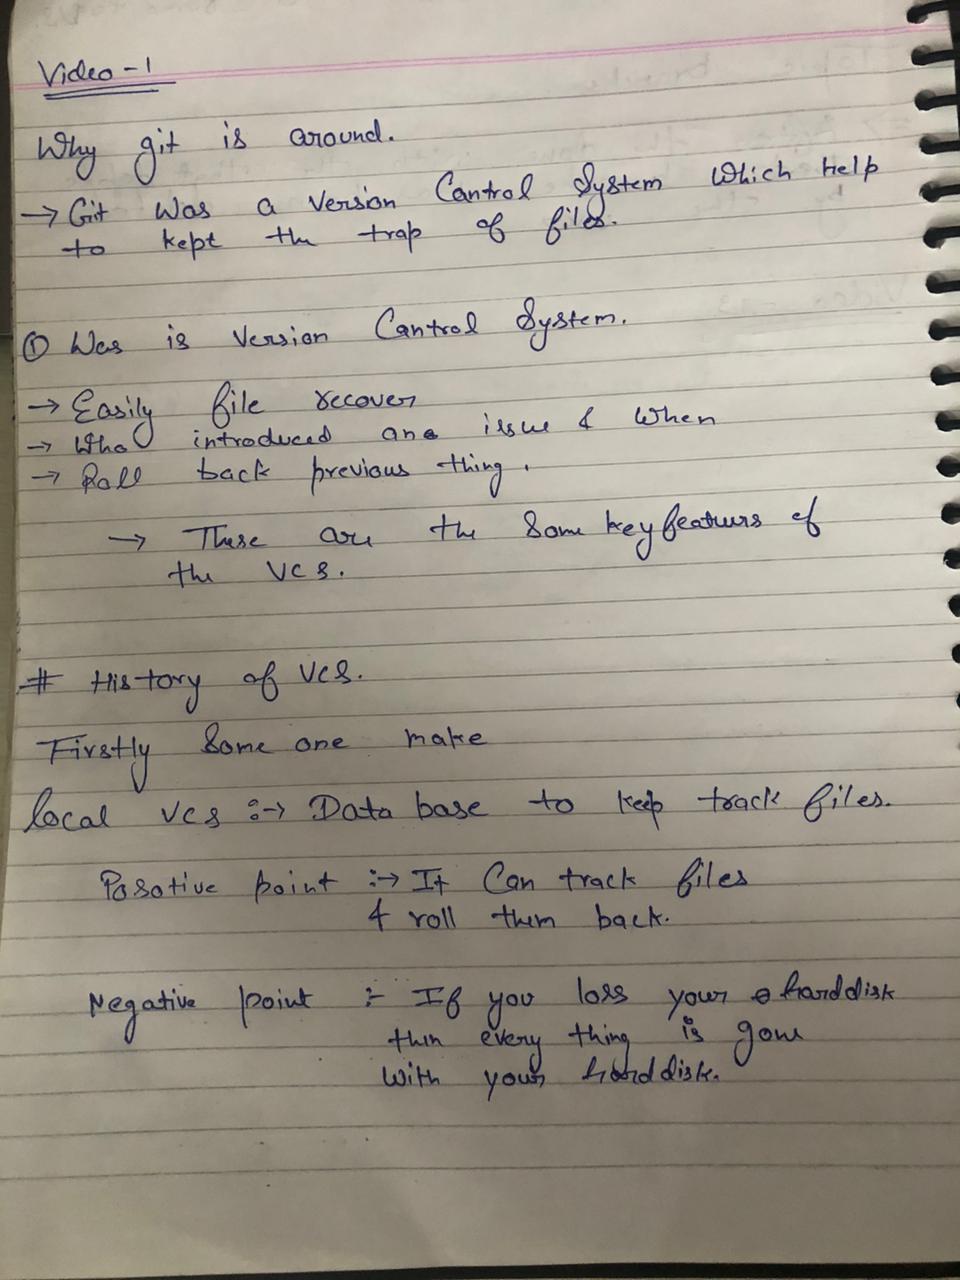 Video - 1
Why git is around.
→ Git was a version Cantrol System which help
to kept the trap of files.
① Was is Version Cantrol System.
→ Easily file recover
→ Who introduced ana issue & when
→ Roll back previous thing.
→ These are the some key featurs of
the VCS.
# History of VCS.
Firstly Some one make
local VCS :→ Data base to keep track files.
Posotive point :→ It Can track files
& roll them back.
Negative point :- If you loss your harddisk
then every thing is gone
with your harddisk.